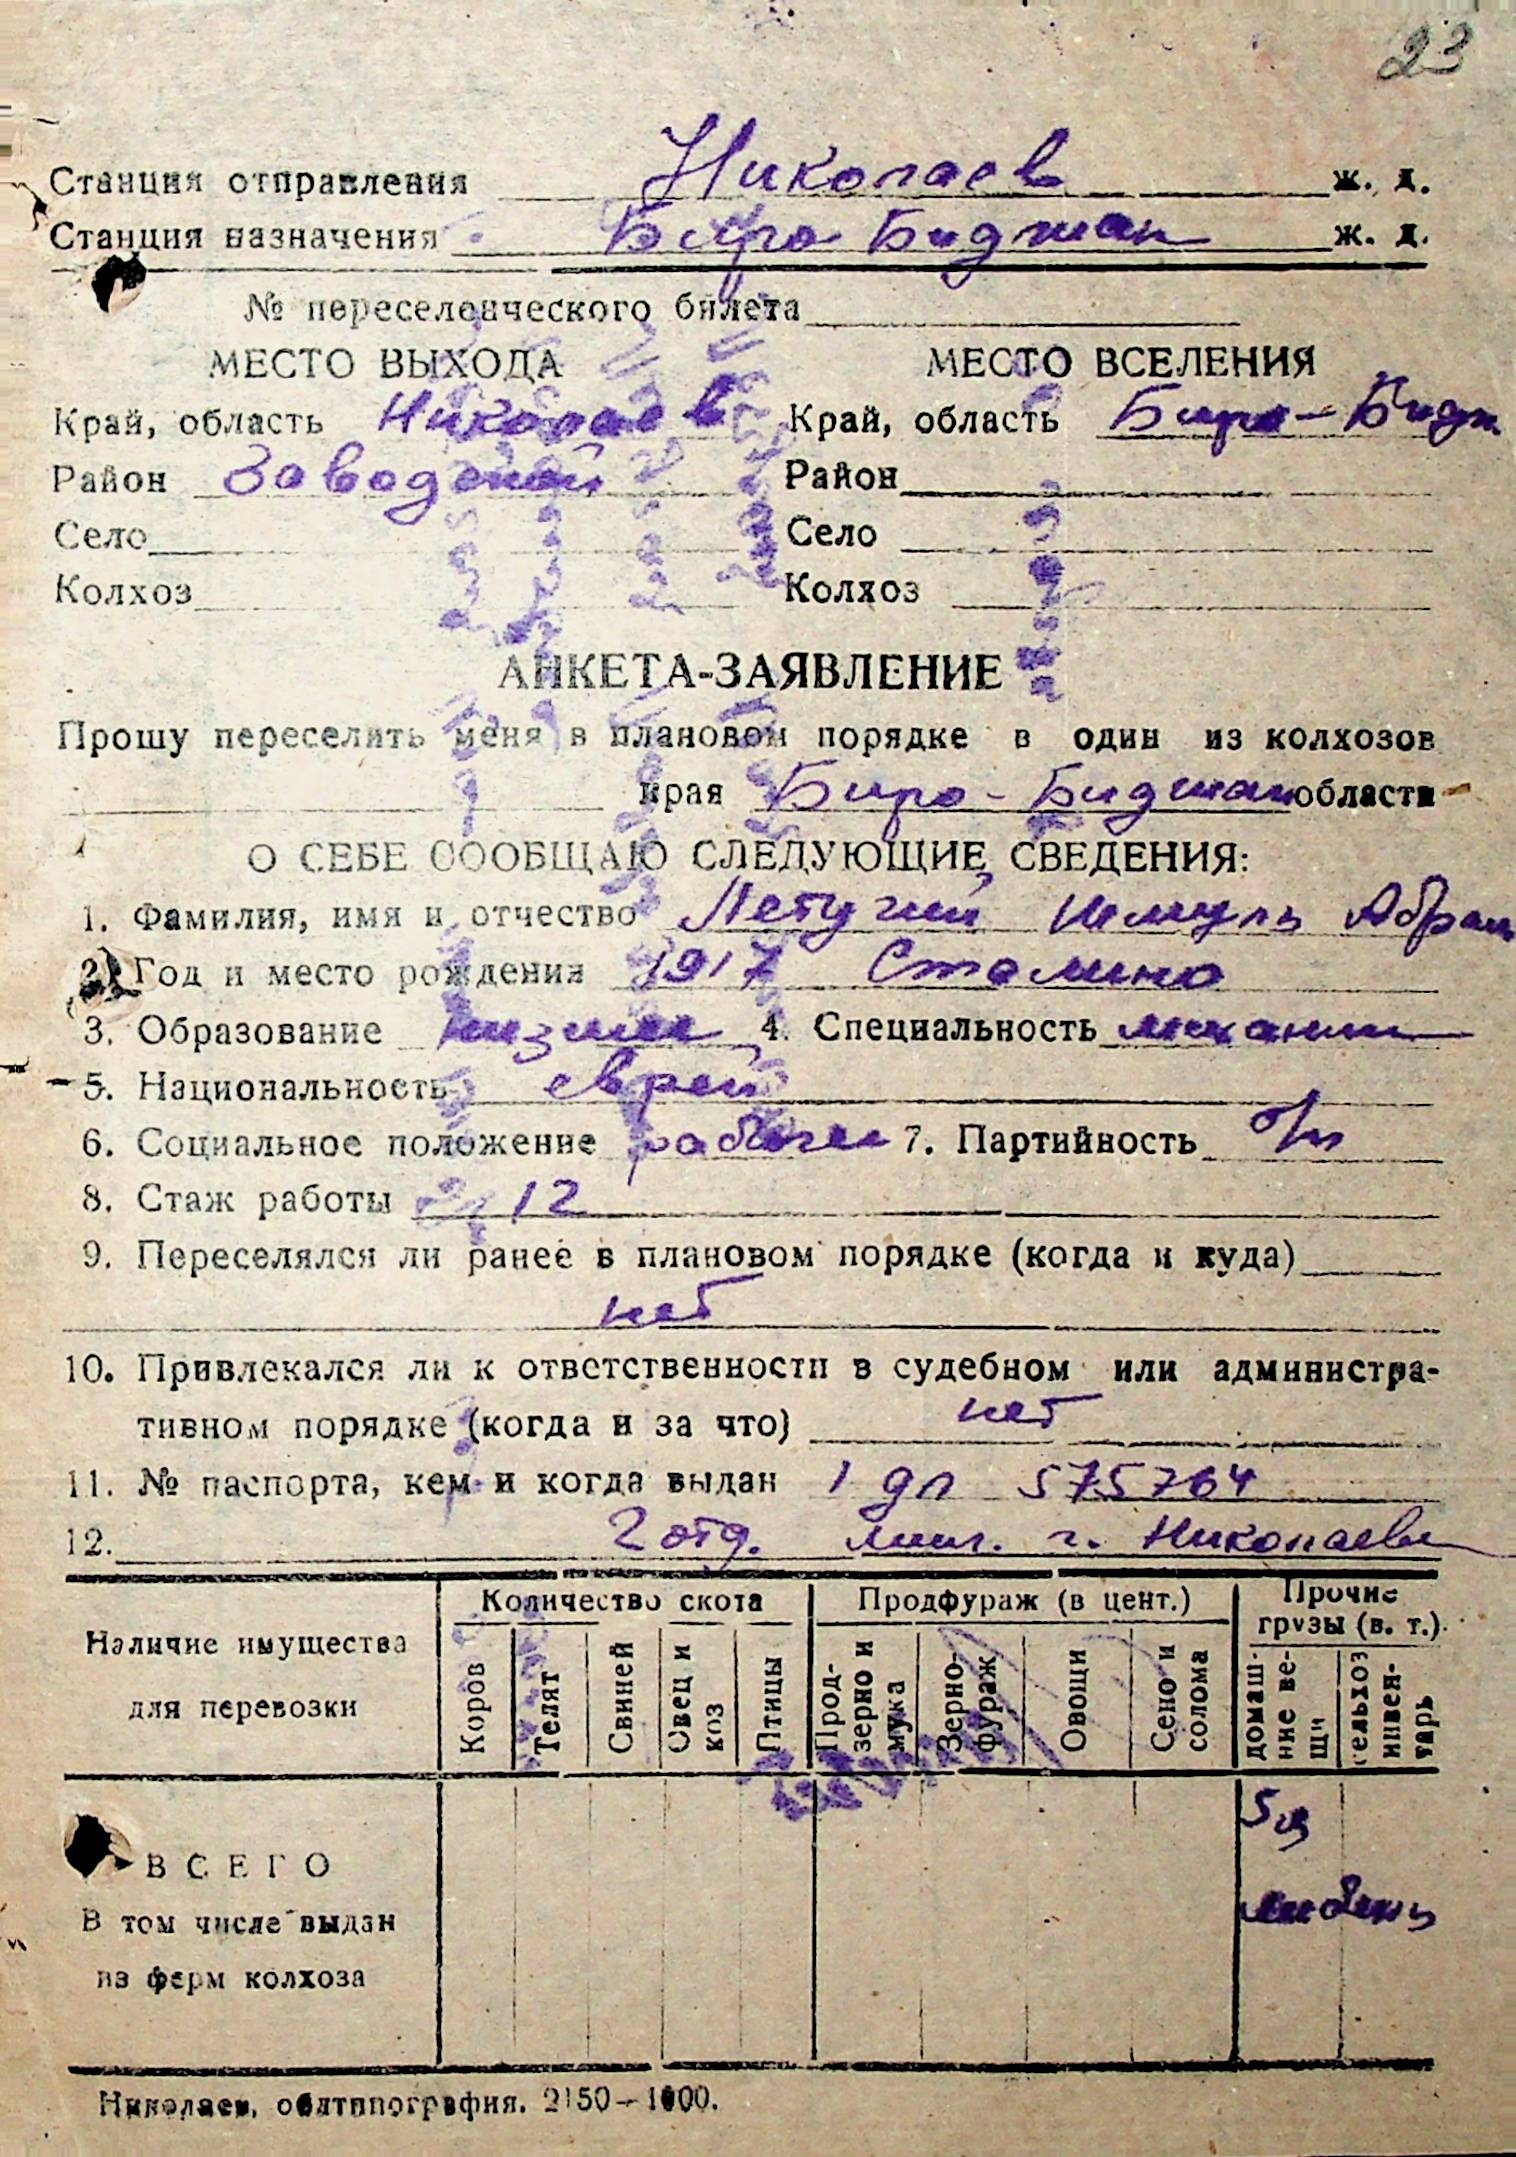 23
Станция отправления Николаев ж. д.
Станция назначения Биро Биджан ж. д.
№ переселенческого билета
МЕСТО ВЫХОДА МЕСТО ВСЕЛЕНИЯ
Край, область Николаев Край, область Биро-Бидж
Район Заводской Район
Село Село
Колхоз Колхоз
АНКЕТА-ЗАЯВЛЕНИЕ
Прошу переселить меня в плановом порядке в один из колхозов
края Биро-Биджан области
О СЕБЕ СООБЩАЮ СЛЕДУЮЩИЕ СВЕДЕНИЯ:
1. Фамилия, имя и отчество Летучий Шмуль Абрам
2. Год и место рождения 1917 Сталино
3. Образование низшее 4. Специальность механик
5. Национальность еврей
6. Социальное положение рабочий 7. Партийность б/п
8. Стаж работы 12
9. Переселялся ли ранее в плановом порядке (когда и куда)
нет
10. Привлекался ли к ответственности в судебном или администра-
тивном порядке (когда и за что) нет
11. № паспорта, кем и когда выдан 1 дл 575764
12. 2 отд. мил. г. Николаева
Наличие имущества для перевозки
Количество скота
Продфураж (в цент.)
Прочие грузы (в. т.).
Коров
Телят
Свиней
Овец и коз
Птицы
Прод-зерно и мука
Зерно-фураж
Овощи
Сено и солома
домаш-ние ве-щи
сельхоз инвен-тарь
5 ц
мебель
ВСЕГО
В том числе выдан
из ферм колхоза
Николаев, облтипография. 2150—1000.